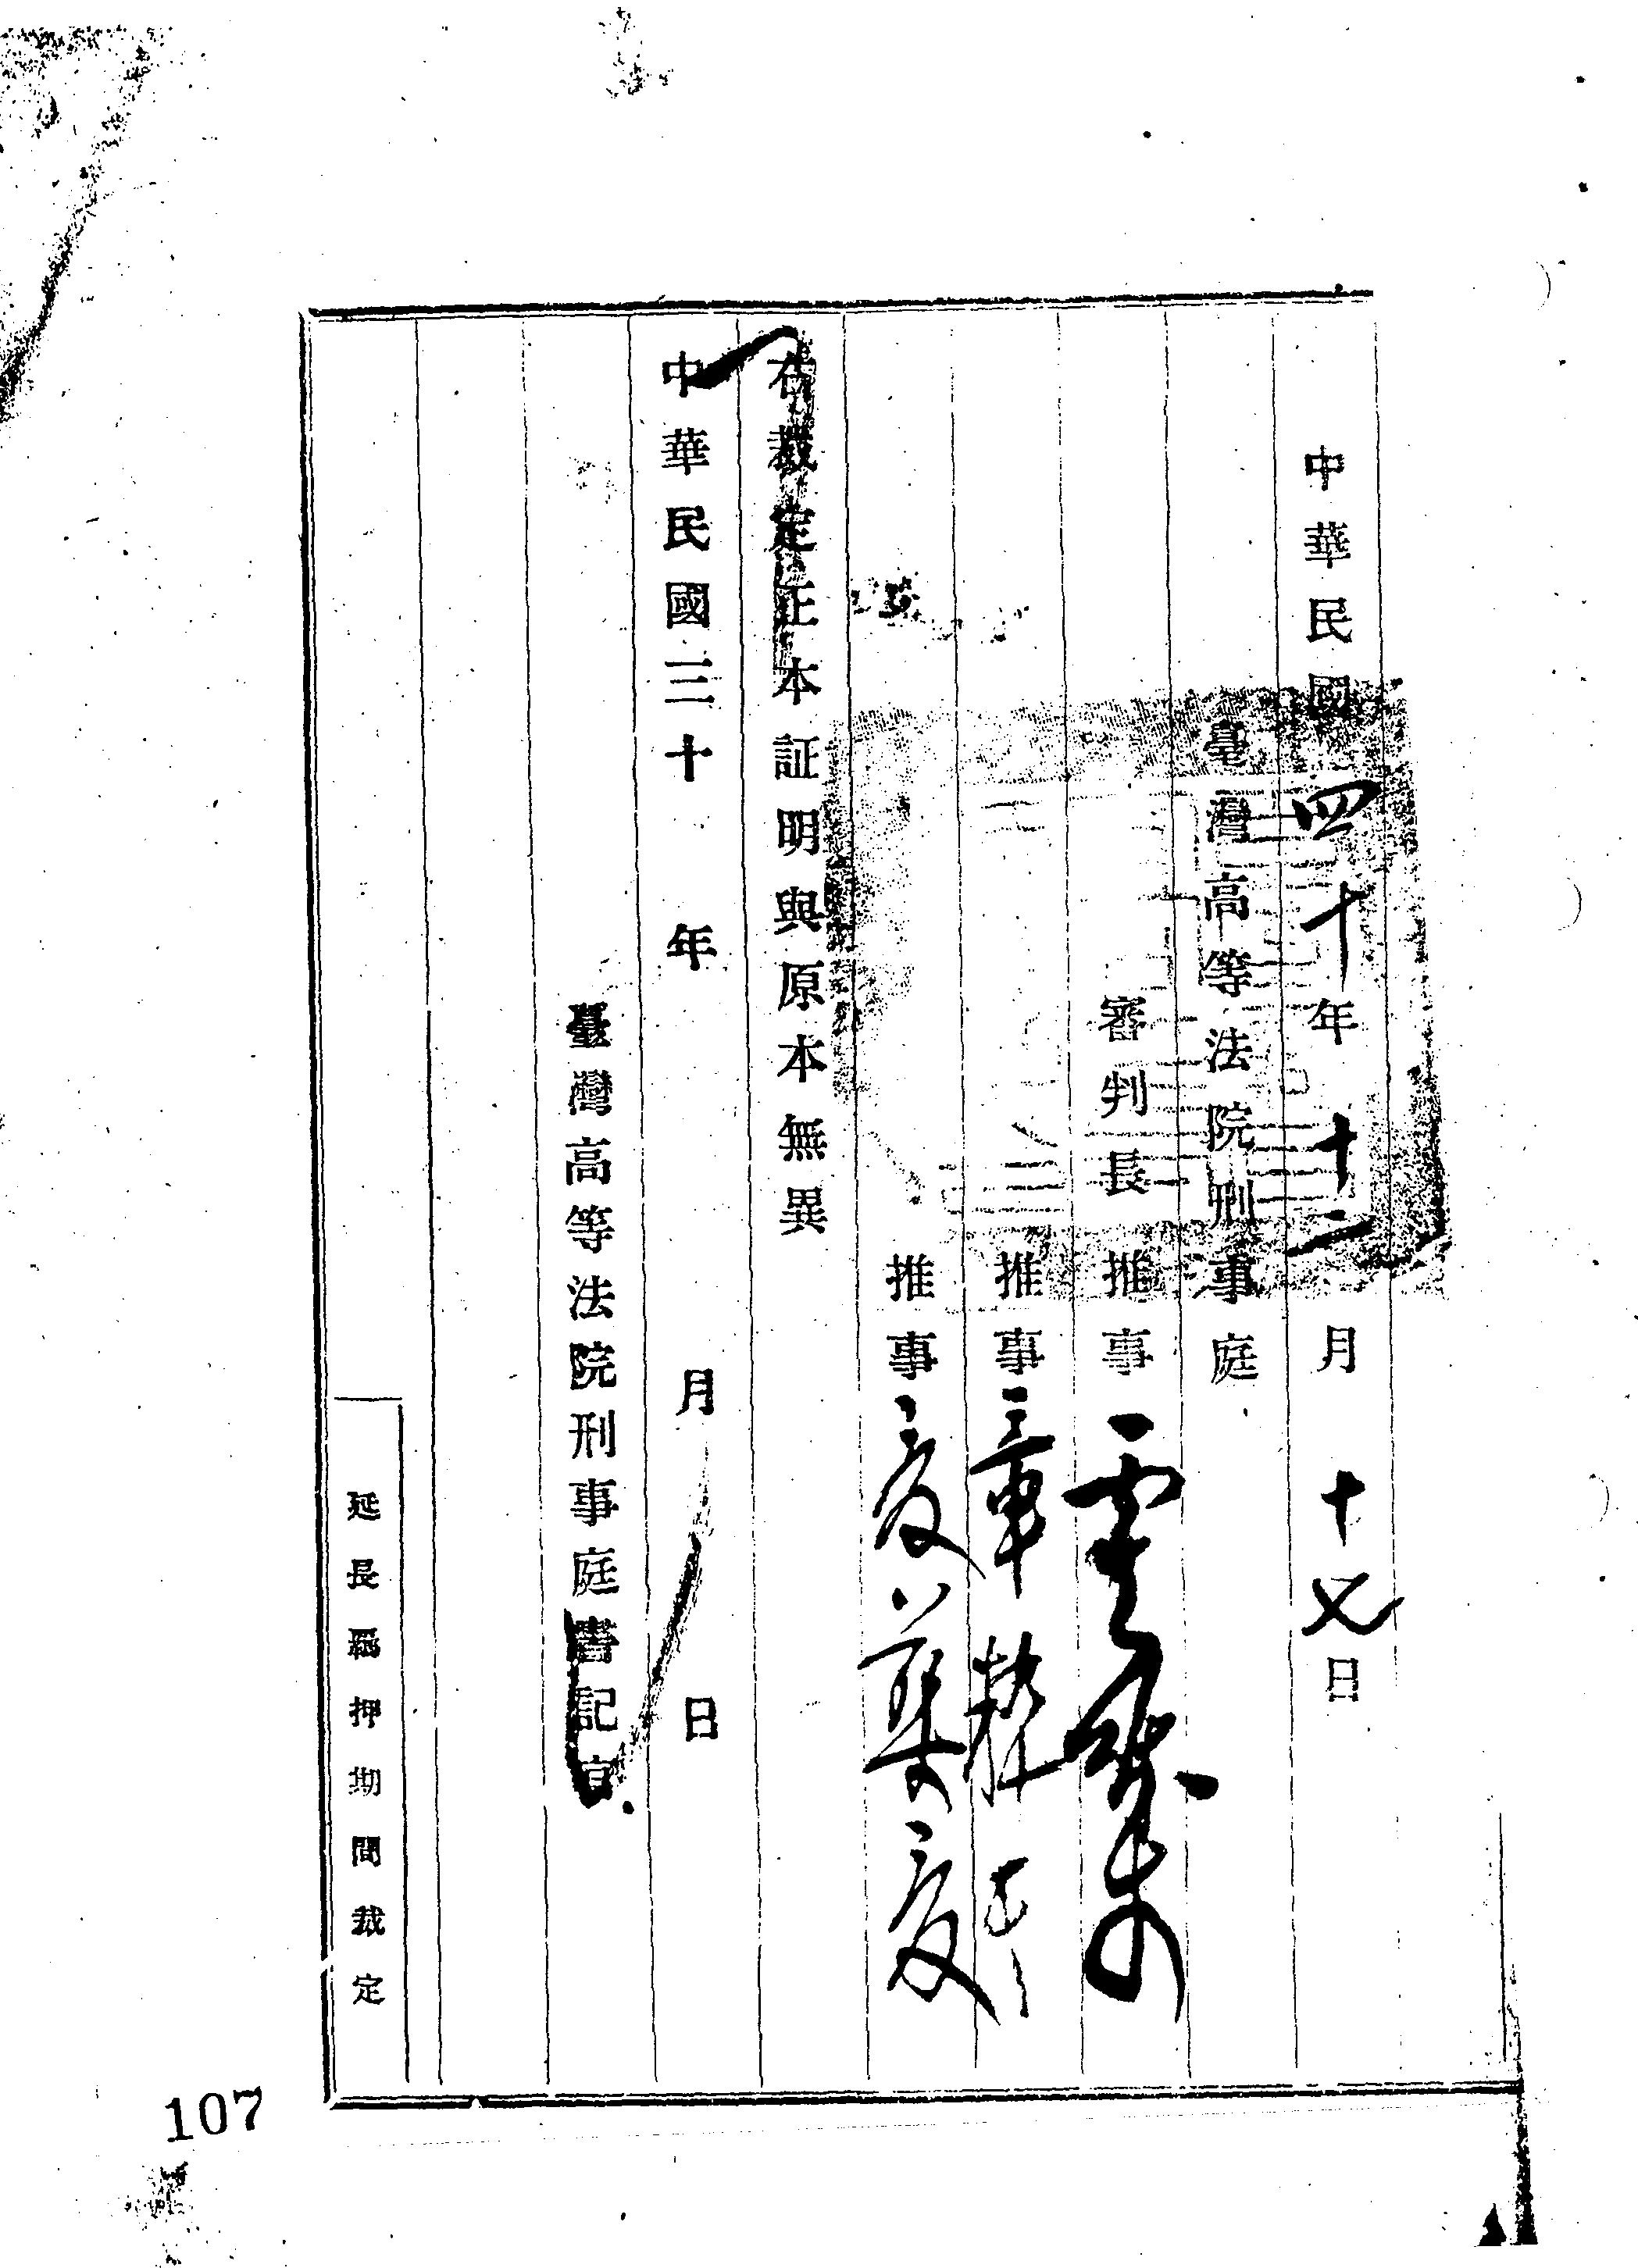 中華民國四十年十二月十七日
臺灣高等法院刑事庭
審判長推事
推事
推事
右裁定正本証明與原本無異
中華民國三十 年 月 日
臺灣高等法院刑事庭書記官
延長羈押期間裁定
107